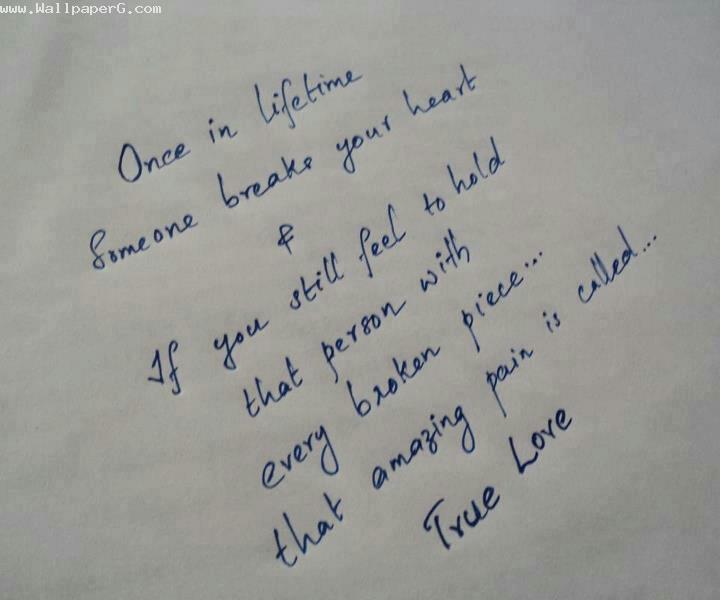 www.WallpaperG.com
Once in Lifetime
Someone breaks your heart
&
If you still feel to hold
that person with
every broken piece...
that amazing pain is called...
True Love